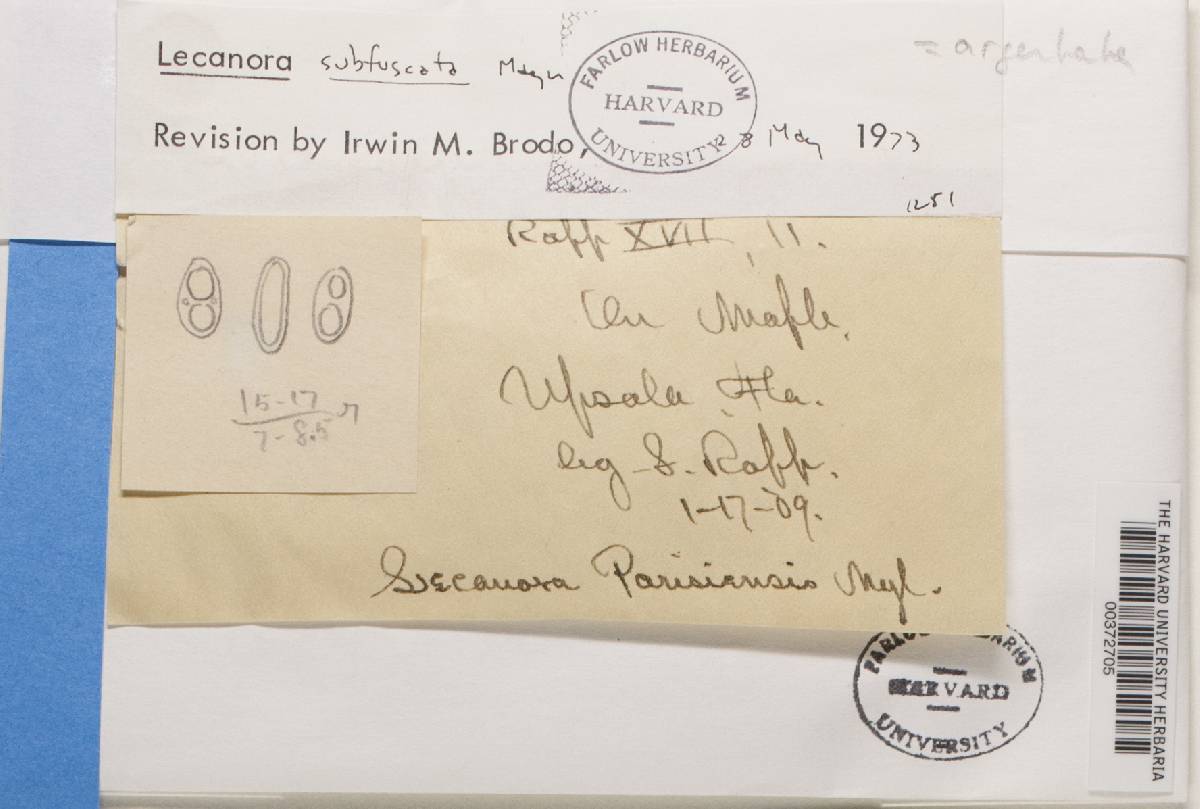 Lecanora subfuscata Magn
= argentata
FARLOW HERBARIUM
HARVARD
UNIVERSITY
Revision by Irwin M. Brodo, 28 May 1973
1251
Rapp XVII, 11.
On Maple.
Upsala Fla.
leg. S. Rapp.
1-17-09.
Lecanora Parisiensis Nyl.
15-17
7-8.5 μ
FARLOW HERBARIUM
HARVARD
UNIVERSITY
THE HARVARD UNIVERSITY HERBARIA
00372705